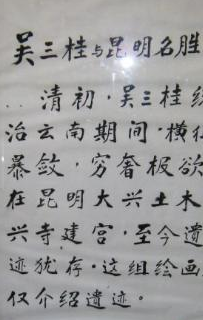 吴三桂与昆明名胜
…清初·吴三桂统
治云南期间·横征
暴敛·穷奢极欲
在昆明大兴土木
兴寺建宫·至今遗
迹犹存·这组绘画
仅介绍遗迹。